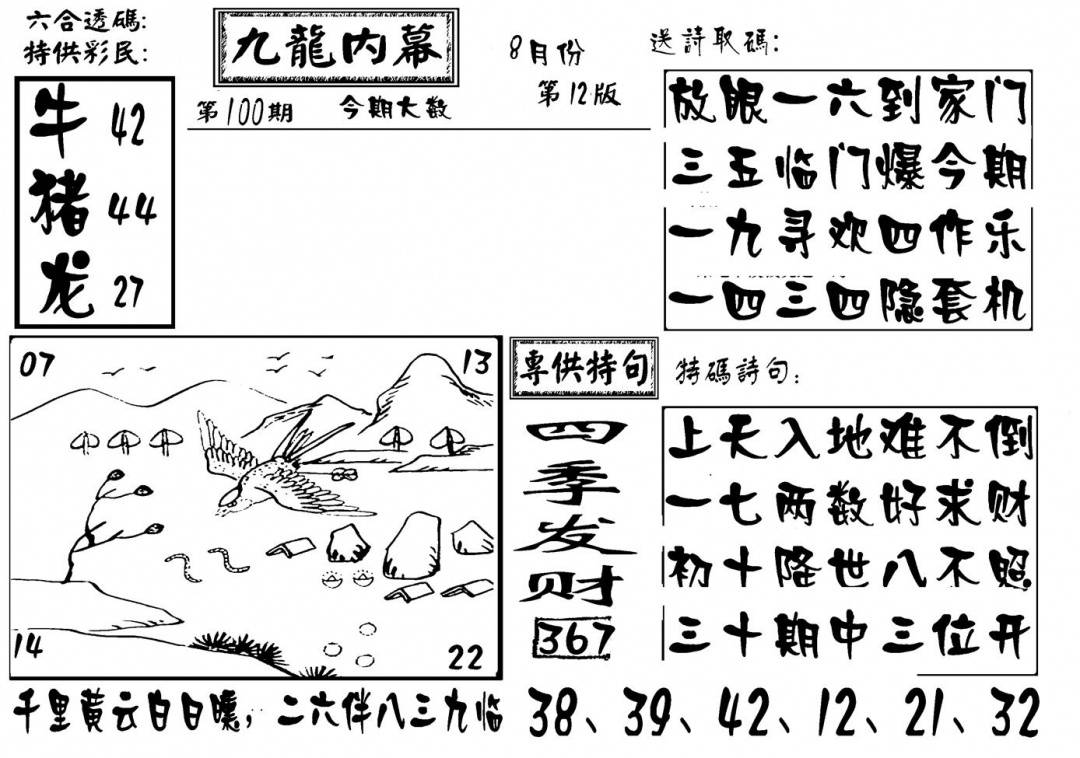 六合透碼:
特供彩民:
牛 42
猪 44
龙 27
九龍内幕
8月份
第12版
第100期 今期大数
送詩取碼:
放眼一六到家门
三五临门爆今期
一九寻欢四作乐
一四三四隐套机
07 13
14 22
專供特句
四季发财
367
特碼詩句:
上天入地难不倒
一七两数好求财
初十降世八不照
三十期中三位开
千里黄云白日曛,二六伴八三九临
38、39、42、12、21、32